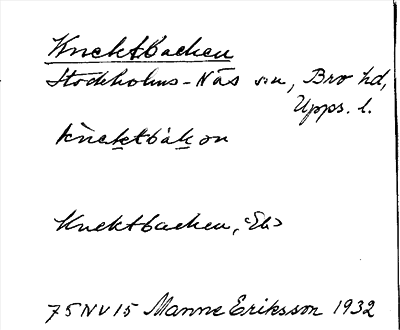 Knektbacken
Stockholms-Näs sn, Bro hd,
Upps. l.
knektbàkon
Knektbacken, <Eb>
75NV15 Manne Eriksson 1932